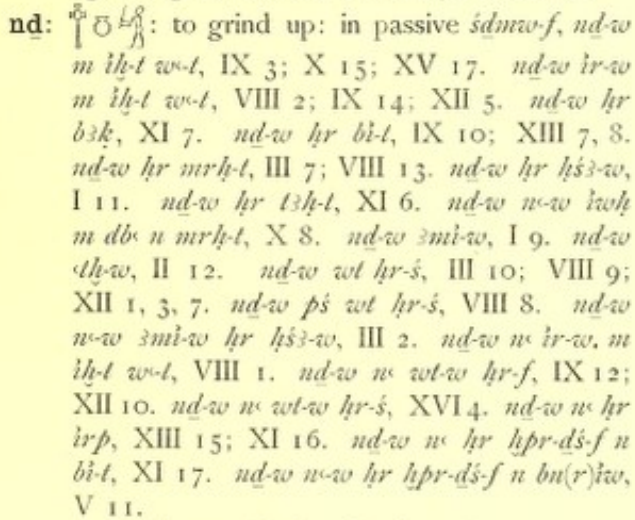 nḏ: 𓌗𓏌𓀜: to grind up: in passive śḏmw-f, nḏ-w
m iḫ-t wꜥ-t, IX 3; X 15; XV 17. nḏ-w ir-w
m iḫ-t wꜥ-t, VIII 2; IX 14; XII 5. nḏ-w ḥr
bꜣḳ, XI 7. nḏ-w ḥr bi-t, IX 10; XIII 7, 8.
nḏ-w ḥr mrḥ-t, III 7; VIII 13. nḏ-w ḥr ḥśꜣ-w,
I 11. nḏ-w ḥr tꜣḥ-t, XI 6. nḏ-w nꜥ-w iwḥ
m dbꜥ n mrḥ-t, X 8. nḏ-w ꜣmi-w, I 9. nḏ-w
ꜥtḫ-w, II 12. nḏ-w wt ḥr-ś, III 10; VIII 9;
XII 1, 3, 7. nḏ-w pś wt ḥr-ś, VIII 8. nḏ-w
nꜥ-w ꜣmi-w ḥr ḥśꜣ-w, III 2. nḏ-w nꜥ ir-w, m
iḫ-t wꜥ-t, VIII 1. nḏ-w nꜥ wt-w ḥr-f, IX 12;
XII 10. nḏ-w nꜥ wt-w ḥr-ś, XVI 4. nḏ-w nꜥ ḥr
irp, XIII 15; XI 16. nḏ-w nꜥ ḥr ḫpr-ḏś-f n
bi-t, XI 17. nḏ-w nꜥ-w ḥr ḫpr-ḏś-f n bn(r)iw,
V 11.